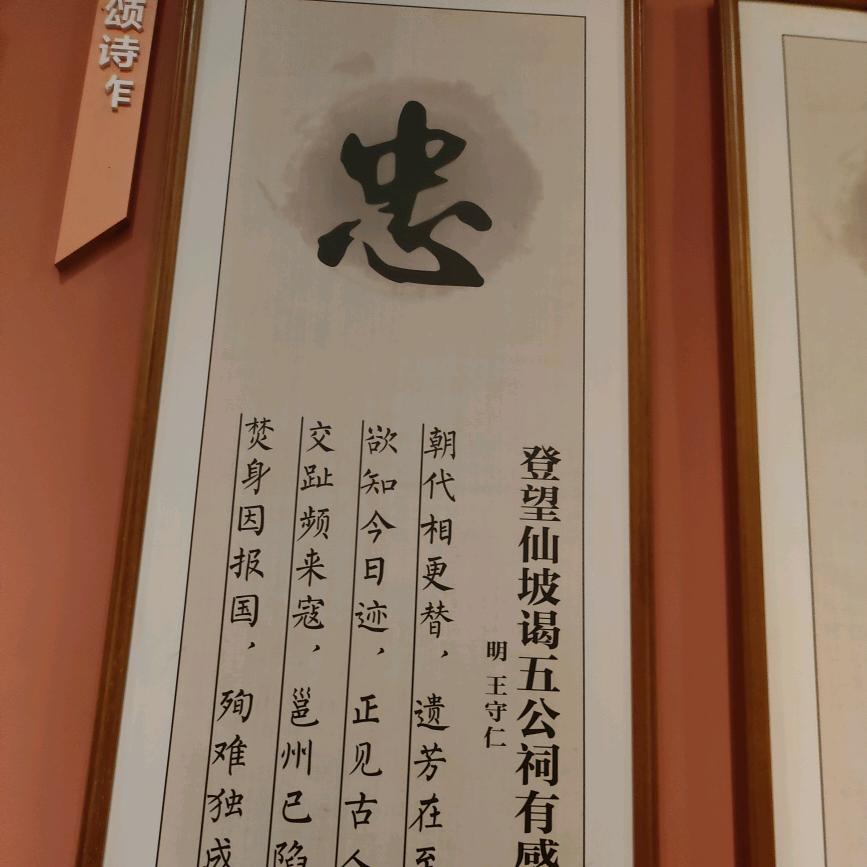 颂诗乍
忠
登望仙坡谒五公祠有感
明 王守仁
朝代相更替，遗芳在至
欲知今日迹，正见古人
交趾频来寇，邕州已陷
焚身因报国，殉难独成